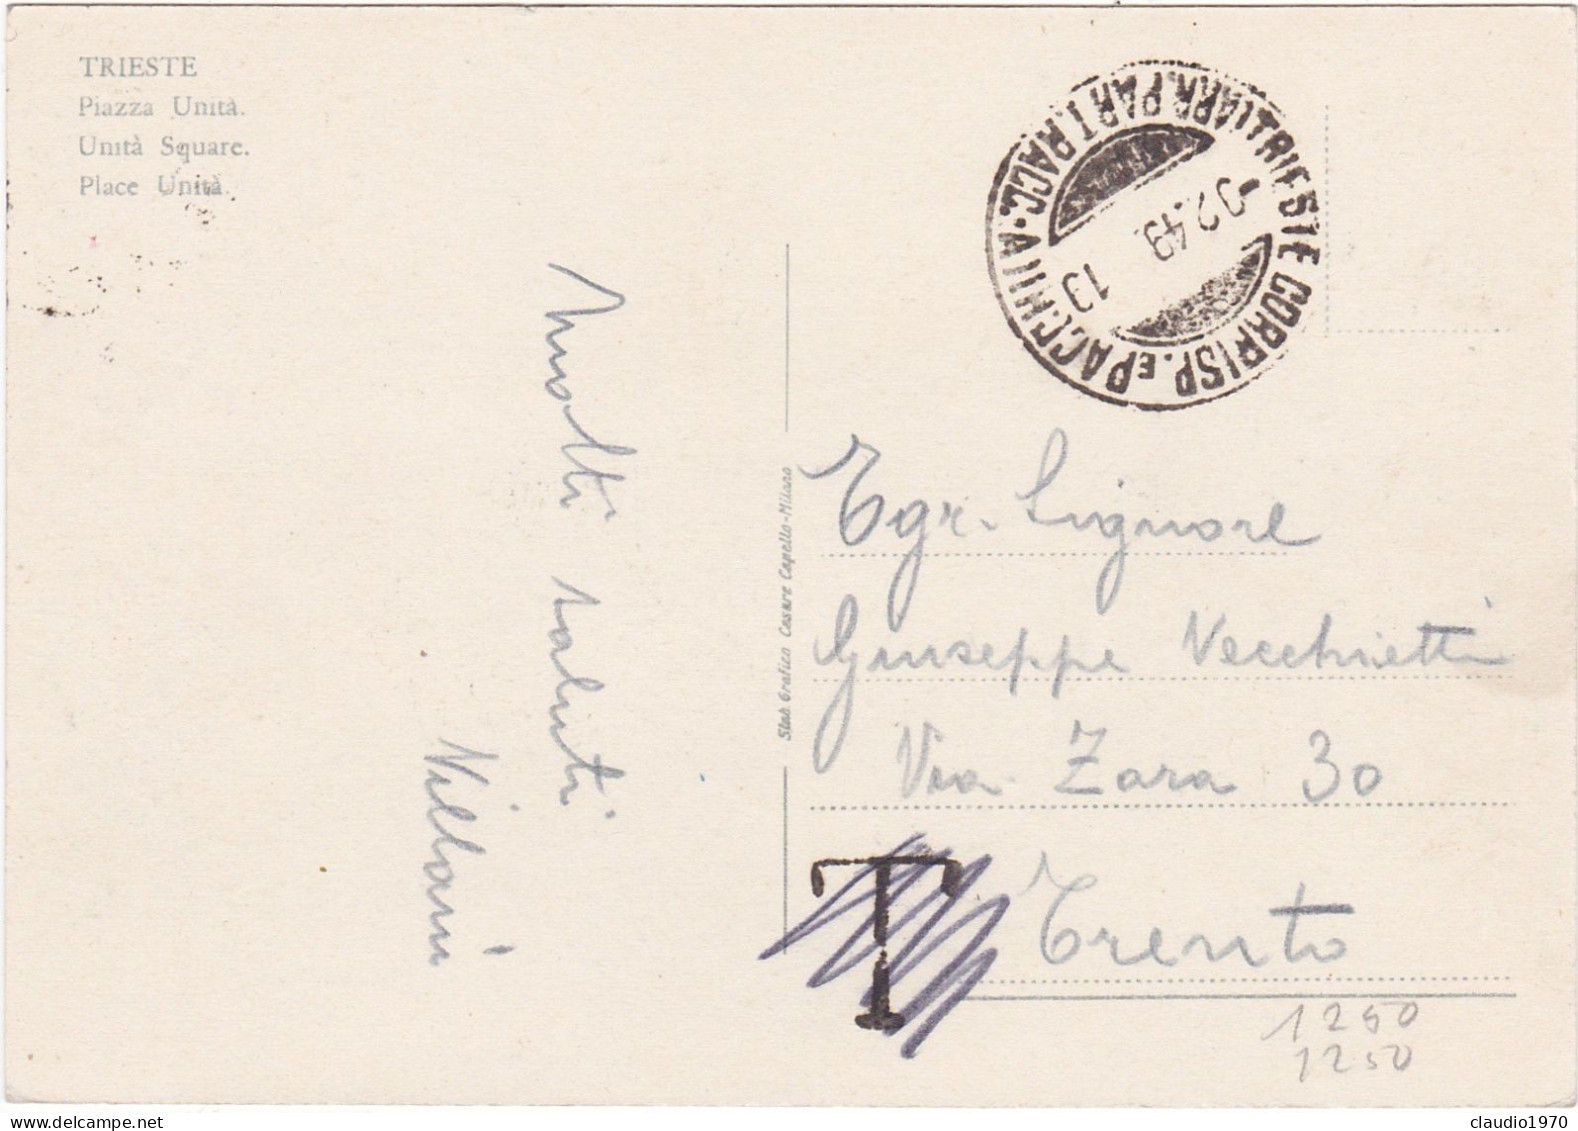 TRIESTE
Piazza Unità.
Unità Square.
Place Unità.
Molti saluti
Villani
Stab. Grafico Cesare Capello-Milano
TRIESTE CORRISP. E PACCHI
ARR. PART. RACC.
2.49. 13
Egr. Signore
Giuseppe Vecchietti
Via Zara 30
Trento
T
1250
1250
claudio1970